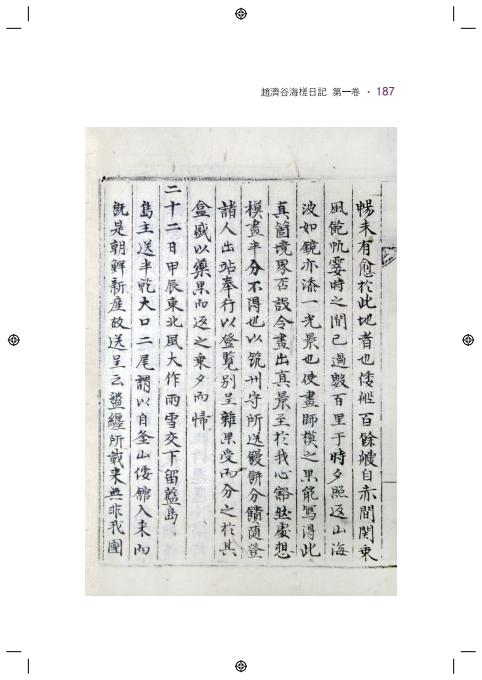 趙濟谷海槎日記 第一卷 · 187
暢未有愈於此地者也倭船百餘艘自赤間關乘
風飽帆霎時之間已過數百里于時夕照返山海
波如鏡亦添一光景也使畫師模之果能寫得此
眞箇境界否設令畫出眞景至於我心豁然處想
模畫半分不得也以筑州守所送饅餠分饋隨登
諸人出站奉行以登覽別呈雜果受而分之於其
盒盛以藥果而返之乘夕而歸
二十二日甲辰東北風大作雨雪交下留藍島
島主送半乾大口二尾謂以自釜山倭館入來而
旣是朝鮮新産故送呈云鹽纏所載來無非我國